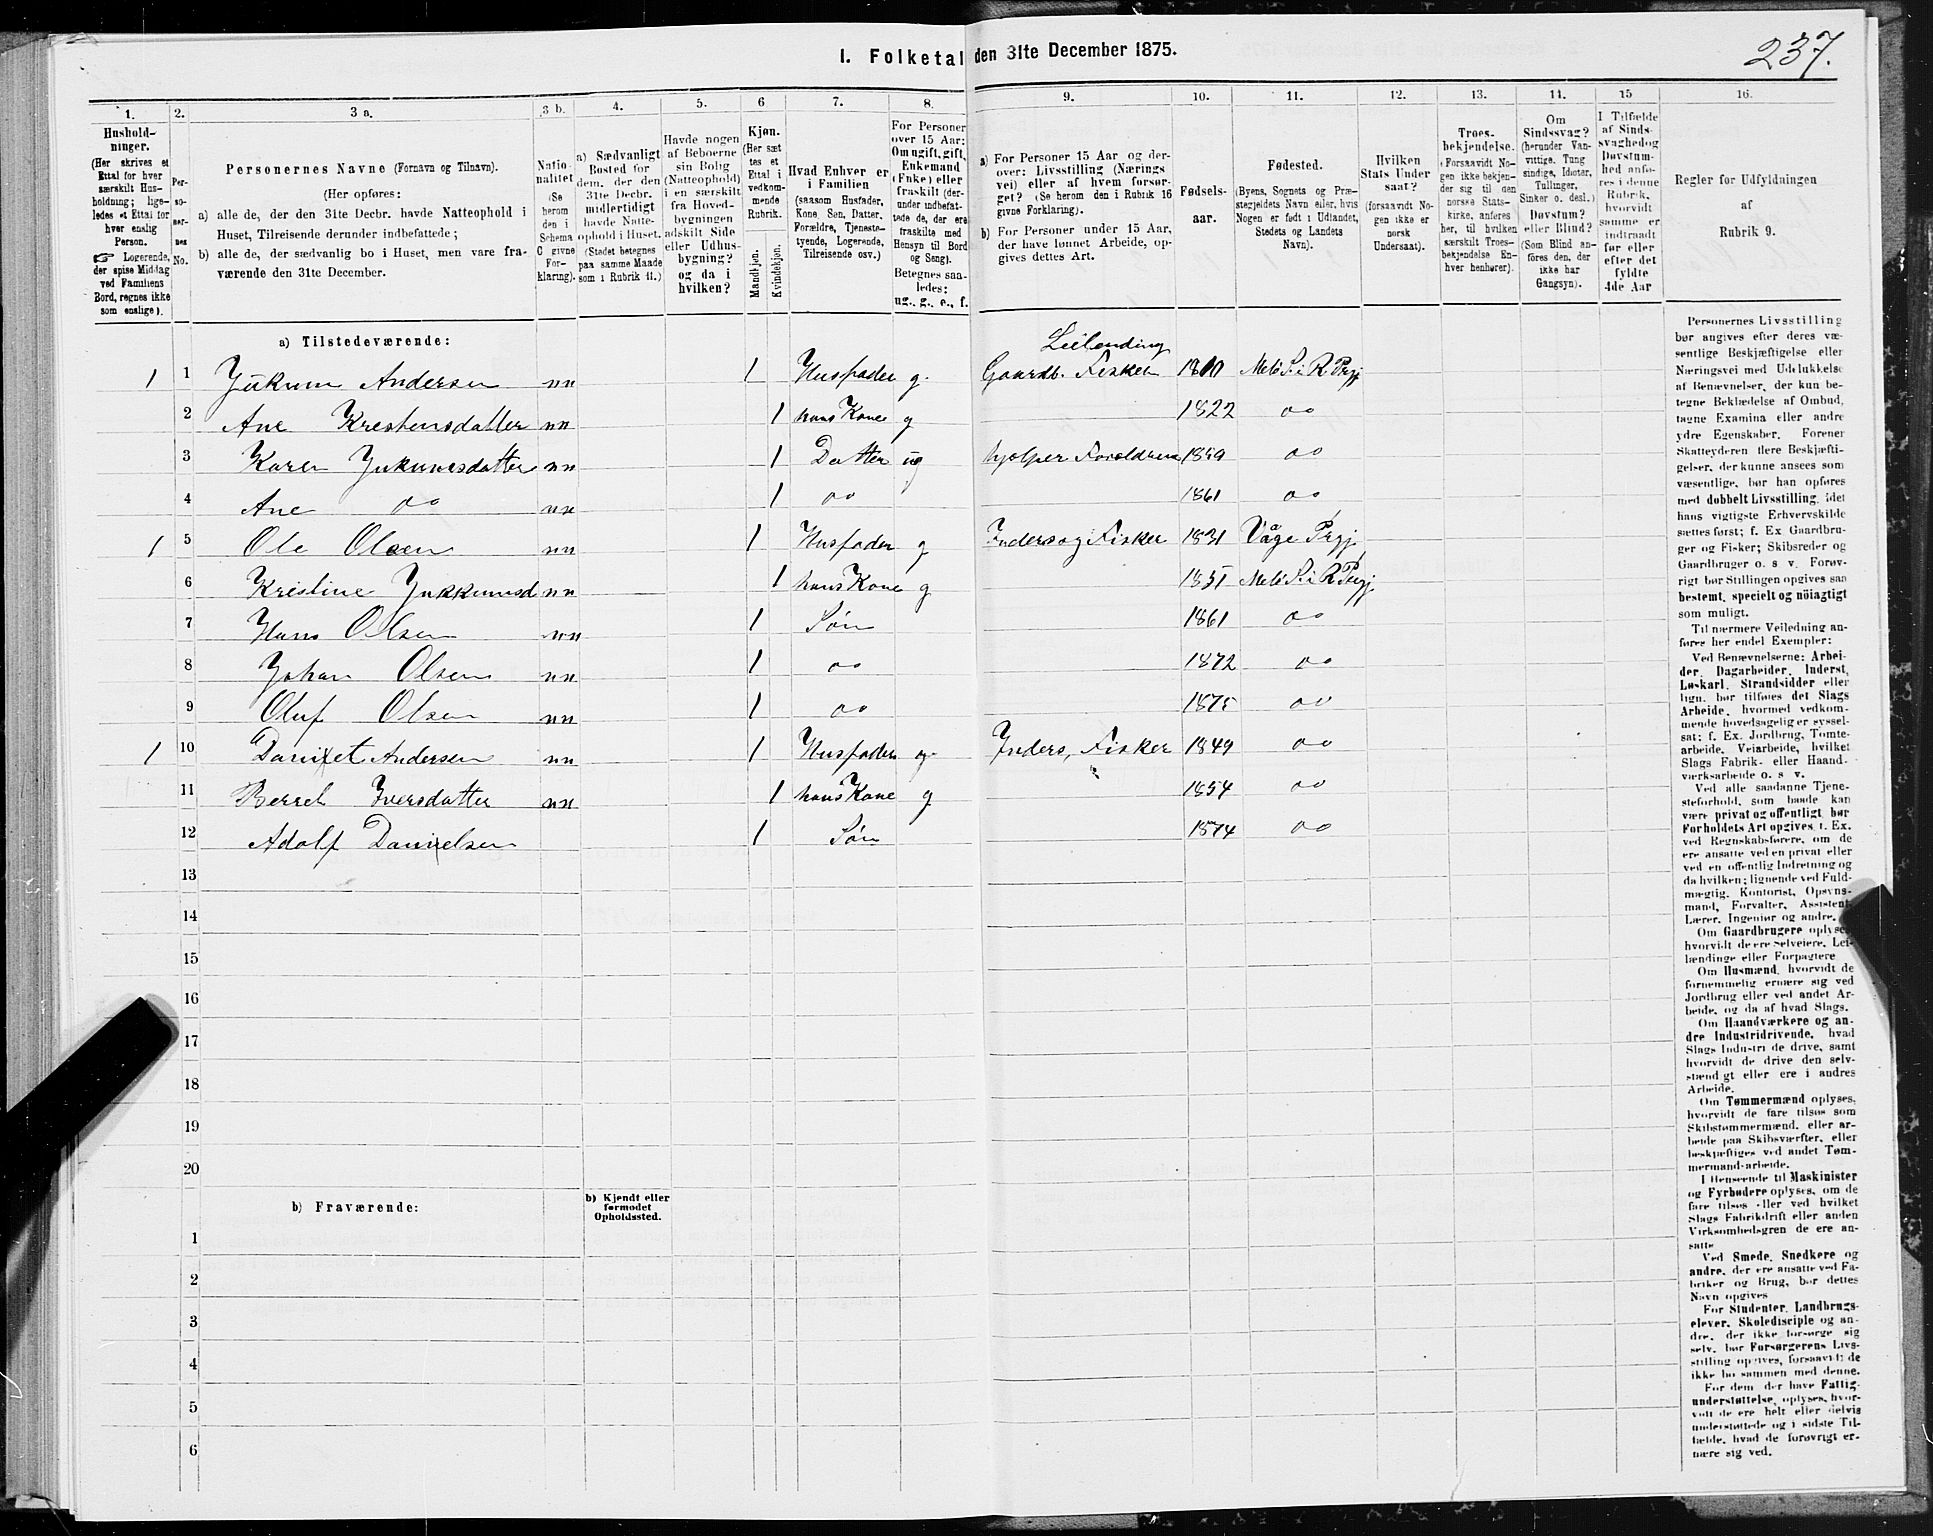 I. Folketal den 31te December 1875.
237.
1.
Hushold-
ninger.
(Her skrives et
Ettal for hver
særskilt Hus-
holdning; lige-
ledes et Ettal for
hver enslig
Person.
☞ Logerende,
der spise Middag
ved Familiens
Bord, regnes ikke
som enslige).
2.
Per-
so-
ner-
nes
No.
3 a.
Personernes Navne (Fornavn og Tilnavn).
(Her opføres:
a) alle de, der den 31te Decbr. havde Natteophold i
Huset, Tilreisende derunder indbefattede;
b) alle de, der sædvanlig bo i Huset, men vare fra-
værende den 31te December.
3 b.
Natio-
nalitet
(Se
herom
den i
Schema
C givne
For-
klaring).
4.
a) Sædvanligt
Bosted for
dem, der den
31te Decbr.
midlertidigt
havde Natte-
ophold i Huset.
(Stedet betegnes
paa samme Maade
som i Rubrik 11.)
5.
Havde nogen
af Beboerne
sin Bolig
(Natteophold)
i en særskilt
fra Hoved-
bygningen
adskilt Side
eller Udhus-
bygning?
og da i
hvilken?
6
Kjøn.
(Her sæt
tes et
Ettal i
vedkom-
mende
Rubrik.
Mandkjøn.
Kvindekjøn.
7.
Hvad Enhver er
i Familien
(saasom Husfader,
Kone, Søn, Datter,
Forældre, Tjeneste-
tyende, Logerende,
Tilreisende osv.)
8.
For Personer
over 15 Aar:
Om ugift, gift,
Enkemand
(Enke) eller
fraskilt (der-
under indbefat-
tede de, der ere
fraskilte med
Hensyn til Bord
og Seng).
Betegnes saa-
ledes:
ug., g., e., f.
9.
a) For Personer 15 Aar og der-
over: Livsstilling (Nærings
vei) eller af hvem forsør-
get? (Se herom den i Rubrik 16
givne Forklaring).
b) For Personer under 15 Aar,
der have lønnet Arbeide, op-
gives dettes Art.
10.
Fødsels-
aar.
11.
Fødested.
(Byens, Sognets og Præ-
stegjeldets Navn eller, hvis
Nogen er født i Udlandet,
Stedets og Landets
Navn).
12.
Hvilken
Stats Under
saat?
(forsaavidt No-
gen ikke er
norsk
Undersaat).
13.
Troes-
bekjendelse.
(Forsaavidt No-
gen ikke bekjen-
der sig til den
norske Stats-
kirke, anføres
her, til hvilken
særskilt Troes-
bekjendelse En-
hver henhører).
14.
Om
Sindssvag?
(herunder Van-
vittige, Tung
sindige, Idioter,
Tullinger,
Sinker o. desl.)
Døvstum?
eller Blind?
(Som Blind an-
føres den, der
ikke har
Gangsyn).
15
I Tilfælde
af Sinds-
svaghed og
Døvstum-
hed anfø-
res i denne
Rubrik,
hvorvidt
samme er
indtraadt
før eller
efter det
fyldte
4de Aar
16.
Regler for Udfyldningen
af
Rubrik 9.
a) Tilstedeværende:
Leilending
1 1 Jukum Andersen nn 1 Husfader g. Gaardb. Fisker Melö S. i R Prgj
2 Ane Krestensdatter nn 1 hans Kone g 1822 oo
3 Karen Jukumsdatter nn 1 Datter ug hjælper Foreldrene 1859 oo
4 Ane oo nn 1 oo 1861 oo
1 5 Ole Olsen nn 1 Husfader g Inders og Fisker 1831 Våge Prgj
6 Kristine Jukkumsd nn 1 hans Kone g Melö S. i R Prgj
7 Hans Olsen nn 1 Søn 1861 oo
8 Johan Olsen nn 1 oo 1872 oo
9 Oluf Olsen nn 1 oo 1875 oo
1 10 Andersen nn 1 Husfader g. Inders, Fisker 1849 oo
11 Berret Iversdatter nn 1 hans Kone g 1854 oo
12 Adolf Danielsen 1 Søn 1874 oo
13
14
15
16
17
18
19
20
b) Fraværende:
b) Kjendt eller
formodet
Opholdssted.
1
2
3
4
5
6
Personernes Livsstilling
bør angives efter deres væ-
sentlige Beskjæftigelse eller
Næringsvei med Udelukkelse
af Benævnelser, der kun be-
tegne Beklædelse af Ombud,
tagne Examina eller andre
ydre Egenskaber. Forener
Skatteyderen flere Beskjæfti-
gelser, der kunne ansees som
væsentlige, bør han opføres
med dobbelt Livsstilling, idet
hans vigtigste Erhvervskilde
sættes først; f. Ex Gaardbru-
ger og Fisker; Skibsreder og
Gaardbruger o. s v. Forøv-
rigt bør Stillingen opgives saa
bestemt, specielt og nöiagtigt
som muligt.
Til nærmere Veiledning an-
føres her endel Exempler:
Ved Benævnelserne: Arbei-
der, Dagarbeider, Inderst,
Løskarl, Strandsidder eller
lign. bør tilføies det Slags
Arbeide, hvormed vedkom-
mende hovedsagelig er syssel-
sat; f. Ex. Jordbrug, Tomte-
arbeide, Veiarbeide, hvilket
Slags Fabrik- eller Haand-
værksarbeide o. s. v.
Ved alle saadanne Tjene-
steforhold, som baade kan
være privat og offentligt, bør
Forholdets Art opgives, t. Ex.
ved Regnskabsførere, om de
ere ansatte ved en privat eller
ved en offentlig Indretning og
da hvilken; lignende ved Fuld-
mægtig, Kontorist, Opsyns-
mand, Forvalter, Assistent,
Lærer, Ingeniør og andre.
Om Gaardbrugere oplyses
hvorvidt de ere Selveiere, Lei-
lændinge eller Forpagtere
Om Husmænd, hvorvidt de
fornemmelig ernære sig ved
Jordbrug eller ved andet Ar-
beide, og da af hvad Slags.
Om Haandværkere og an-
dre Industridrivende, hvad
Slags Industri de drive, samt
hvorvidt de drive den selv-
stændigt eller ere i andres
Arbeide.
Om Tømmermænd oplyses,
hvorvidt de fare tilsøs som
Skibstømmermænd, eller ar-
beide paa Skibsværfter, eller
beskjæftiges ved andet Tøm-
mermand-arbeide.
I Henseende til Maskinister
og Fyrbødere oplyses, om de
fare tilsøs eller ved hvilket
Slags Fabrikdrift eller anden
Virksomhedsgren de ere an-
satte
Ved Smede, Snedkere og
andre, der ere ansatte ved Fa-
briker og Brug, bør dettes
Navn opgives
For Studenter, Landbrugs-
elever, Skoledisciple og an-
dre, der ikke forsørge sig
selv, bør Forsørgerens Livs-
stilling opgives, forsaavidt de
ikke bo sammen med denne.
For dem, der have Fattig-
understøttelse, oplyses, hvor-
vidt de ere helt eller delvis
understøttede og i sidste Til-
fælde, hvad de forøvrigt er-
nære sig ved.